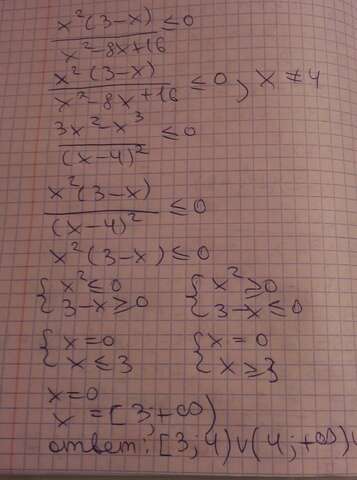 x²(3-x)/x²-8x+16 ≤ 0
x²(3-x)/x²-8x+16 ≤ 0, x ≠ 4
3x²-x³/(x-4)² ≤ 0
x²(3-x)/(x-4)² ≤ 0
x²(3-x) ≤ 0
{x² ≤ 0 {x² ≥ 0
{3-x ≥ 0 {3-x ≤ 0
{x = 0 {x = 0
{x ≤ 3 {x ≥ 3
x = 0
x = [3; +∞)
ответ: [3; 4) ∪ (4; +∞) ∪